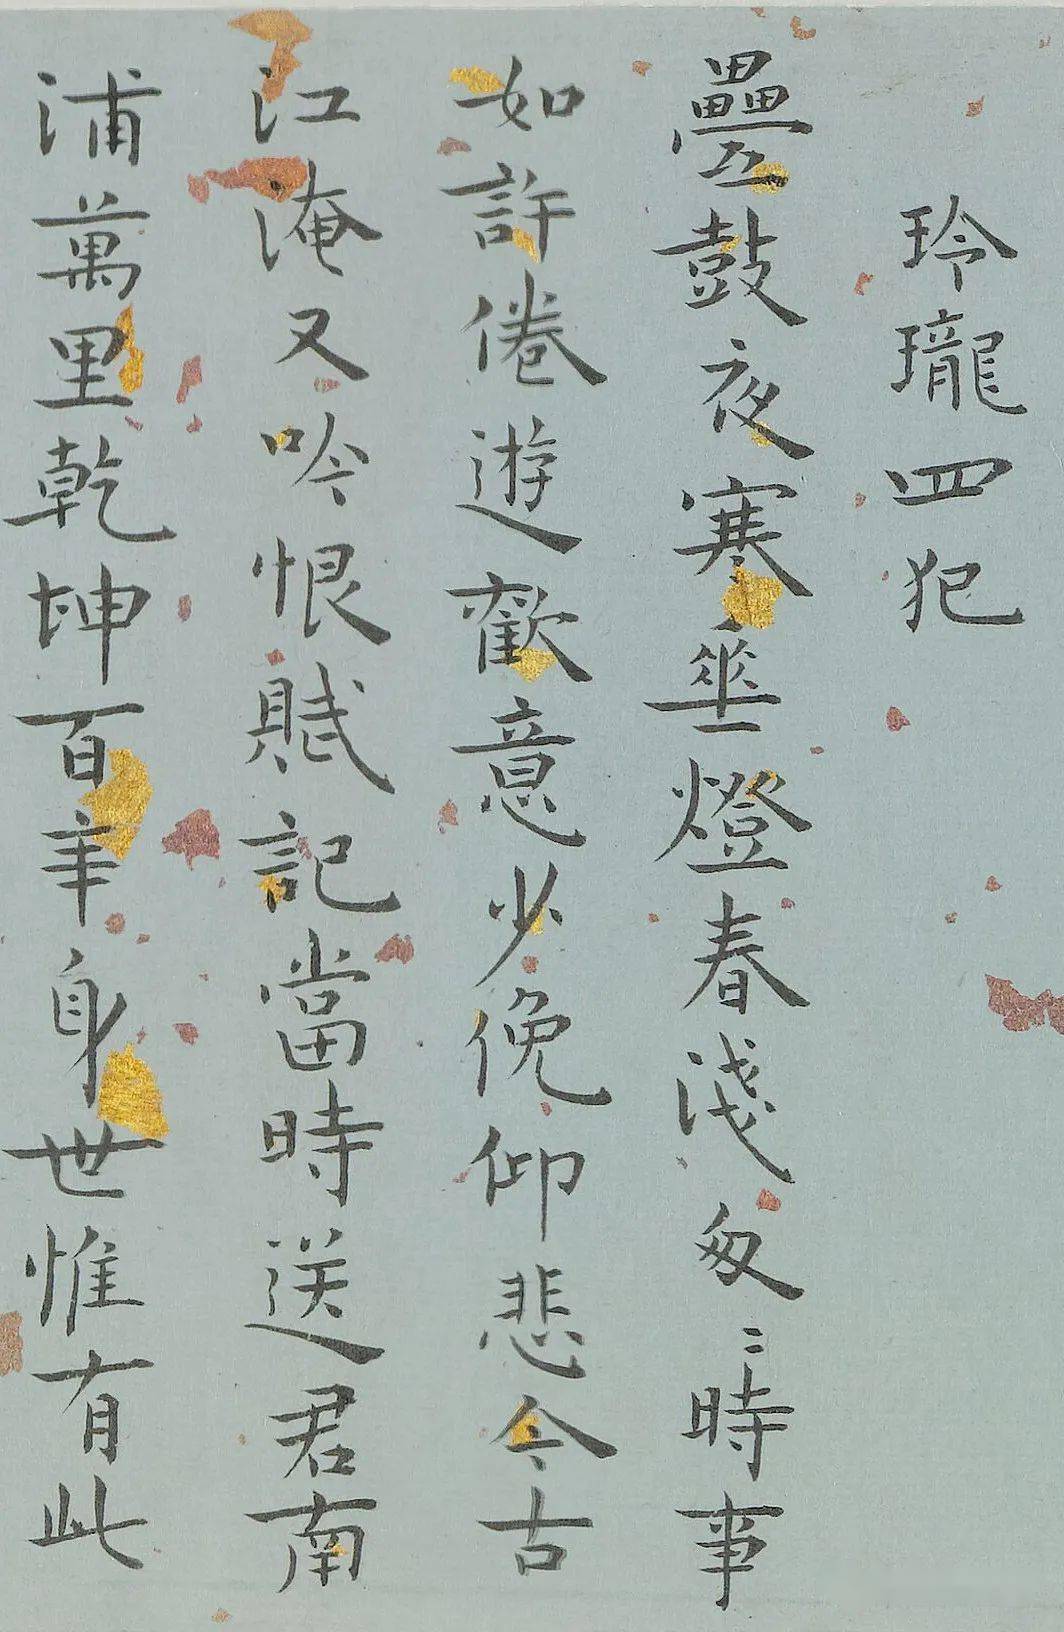 玲瓏四犯
疊鼓夜寒垂燈春淺匆〻時事
如許倦遊歡意少俛仰悲今古
江淹又吟恨賦記當時送君南
浦萬里乾坤百年身世惟有此